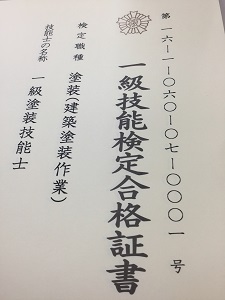 第一六-一-〇六〇-〇七-〇〇〇一号
一級技能検定合格証書
検定職種 塗装(建築塗装作業)
技能士の名称 一級塗装技能士